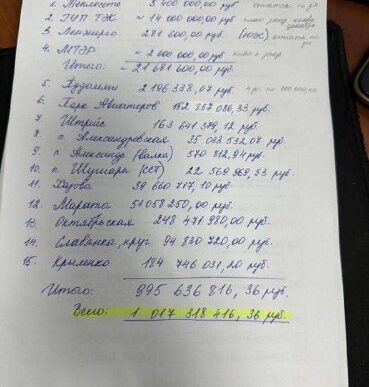 1. Теплосеть 5 400 000,00 руб
2. ГУП ТЭК ~ 14 000 000,00 руб
3. Ленэнерго 281 600,00 руб. (ЮЭС)
4. МТЭР ~ 2 000 000,00 руб
Итого: ~ 21 681 600,00 руб.
5. 2 196 338,07 руб
6. Парк Авиаторов 152 857 086,33 руб.
7. 163 641 379,12 руб
8. п. Александровская 35 033 532,07 руб.
9. п. Александр (Волхв) 570 812,94 руб
10. п. Шушары (ССТ) 22 569 969,53 руб.
11. Харова 39 660 717,10 руб
12. Марата 51 058 250,00 руб.
13. Октябрьская 248 471 980,00 руб.
14. Славянка, круг 94 830 720,00 руб.
15. Крыленко 184 746 031,20 руб.
Итого: 995 636 816,36 руб.
Всего: 1 017 318 416,36 руб.